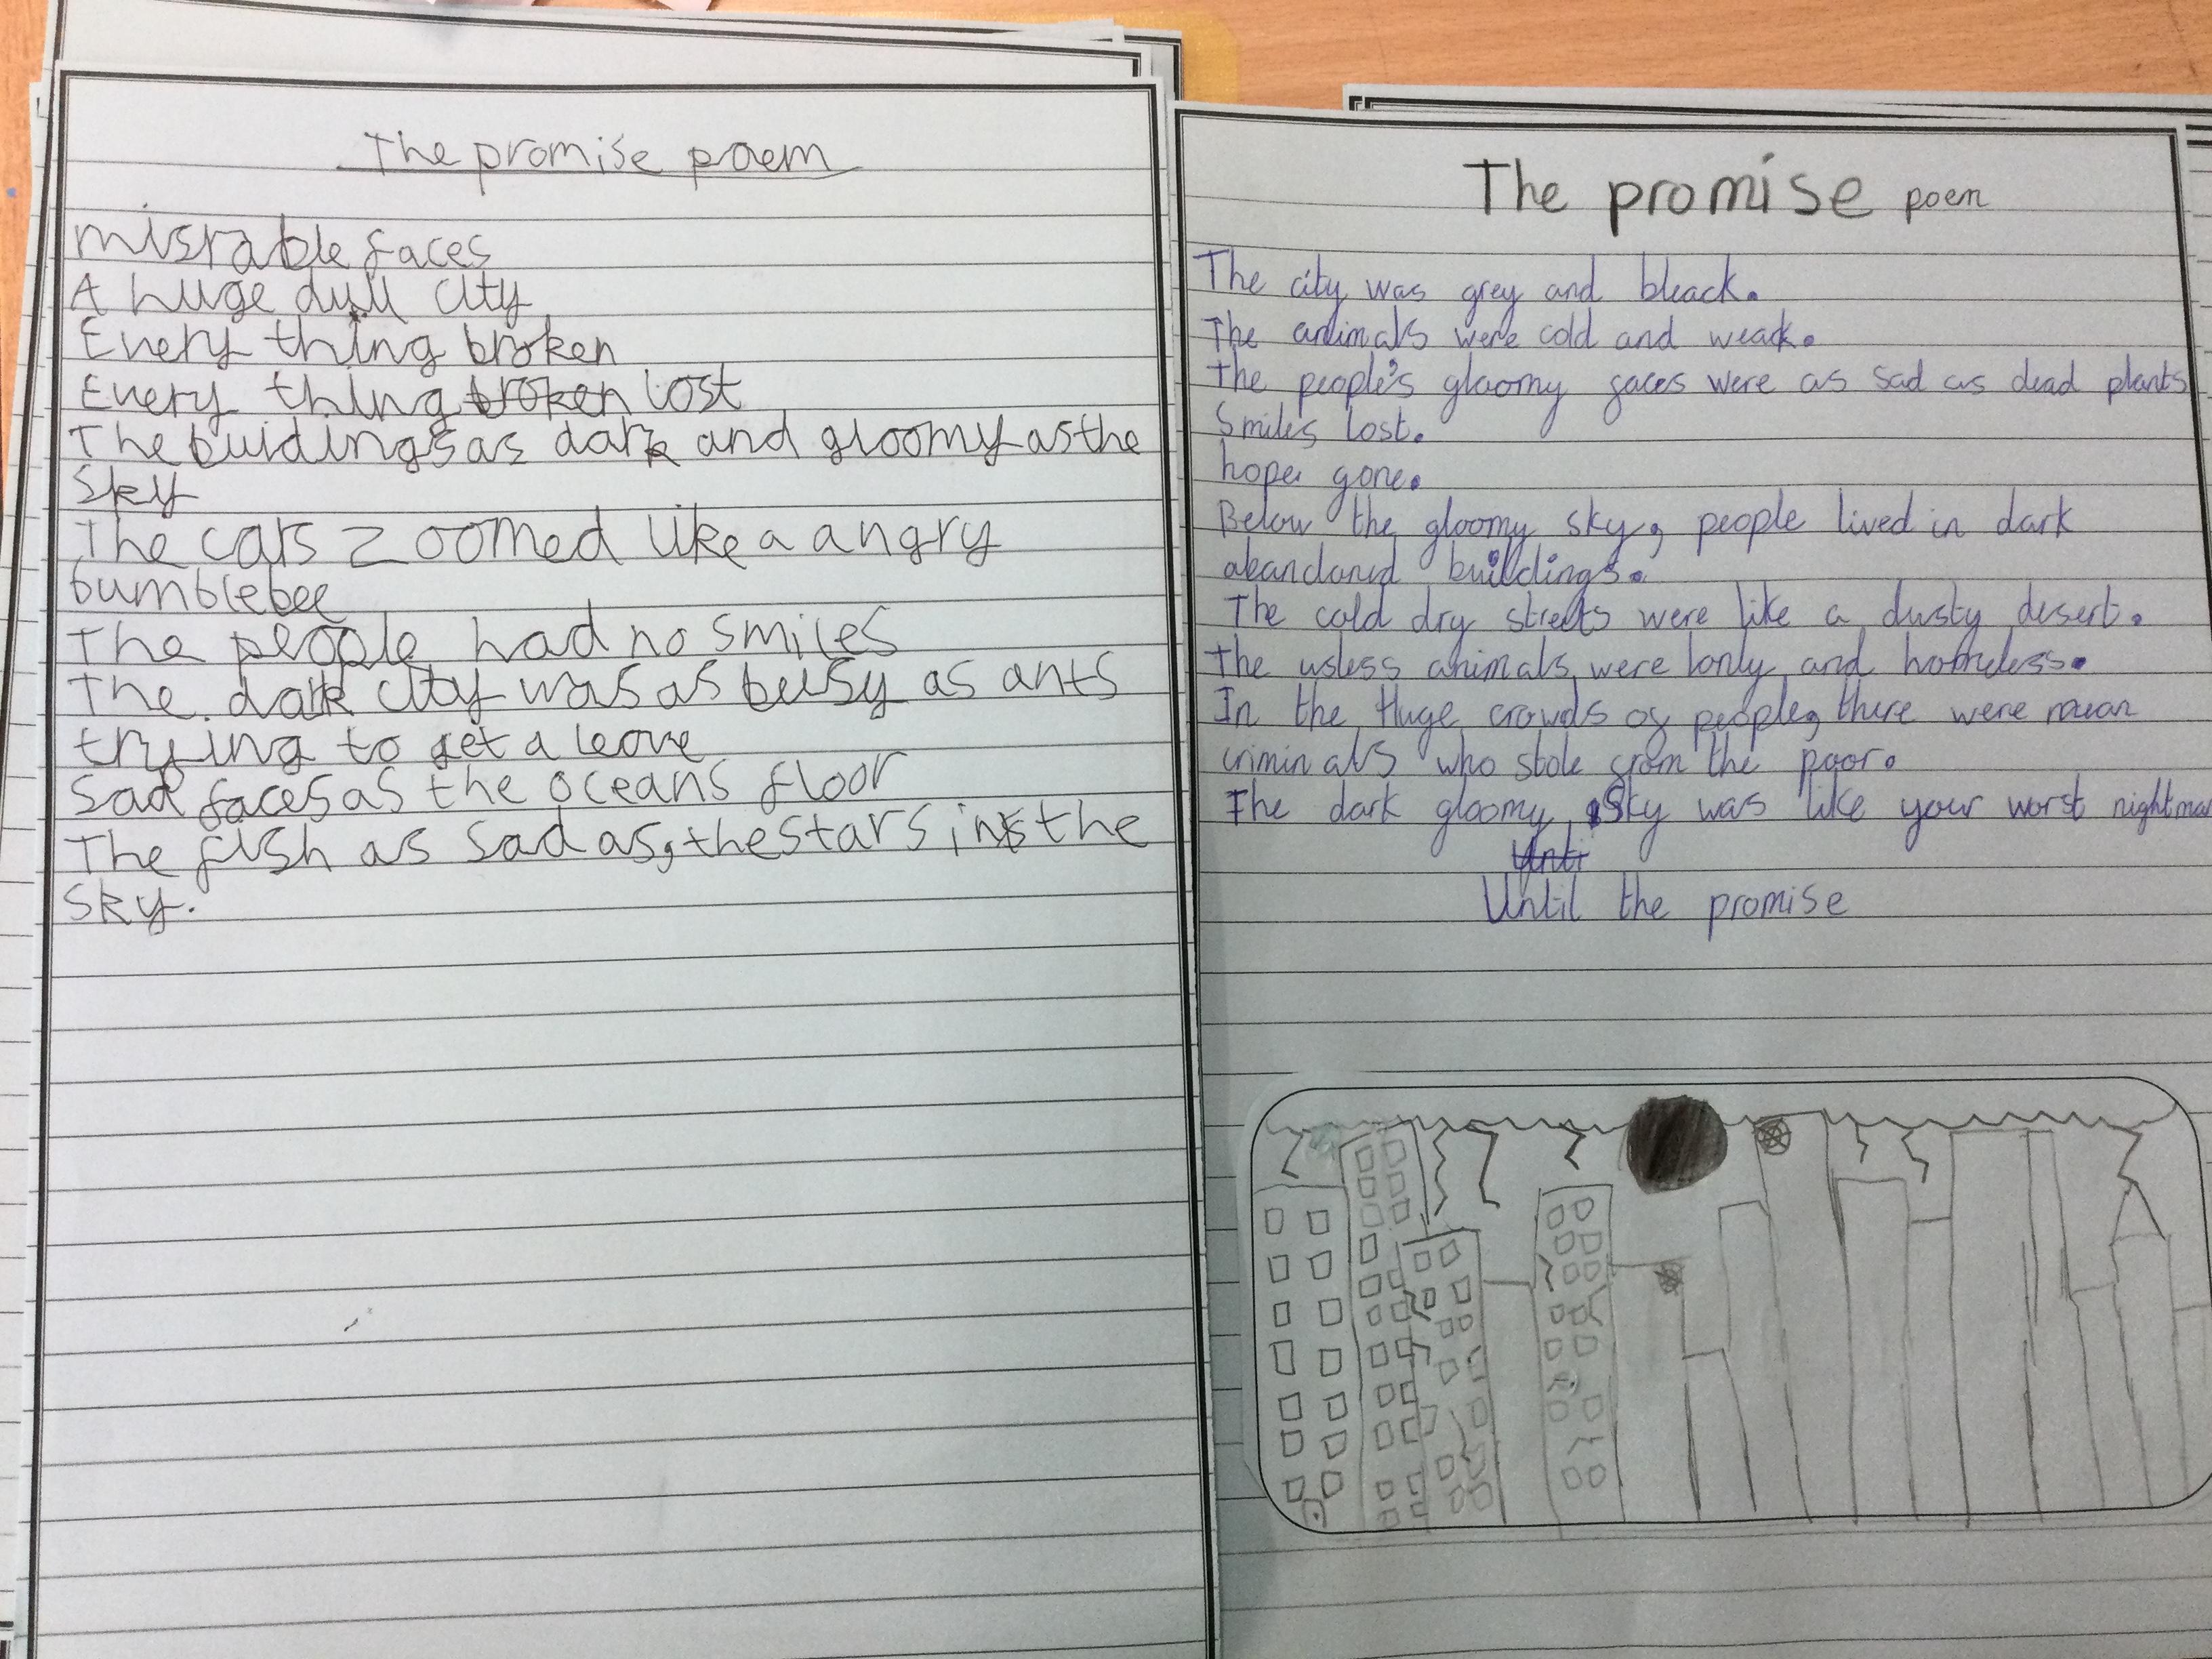 The promise poem
misrable faces
A huge dull city
Every thing broken
Every thing broken lost
The buidings as dark and gloomy as the
sky
The cars zoomed like a angry
bumblebee
The people had no smiles
The dark city was as beusy as ants
trying to get a leove
sad faces as the oceans floor
The fish as sad as, the stars in the
sky.
The promise poem
The city was grey and bleack.
The animals were cold and weack.
The people's gloomy faces were as sad as dead plants
Smiles lost.
hope gone.
Below the gloomy sky, people lived in dark
abandaned buildings.
The cold dry streets were like a dusty desert.
The usless animals were lonly and homeless.
In the Huge crowds of people, there were mean
criminals who stole from the poor.
The dark gloomy Sky was like your worst nightmar
Unti
Until the promise